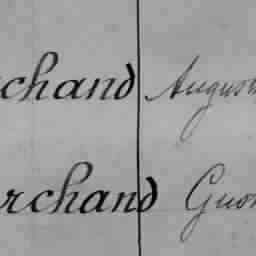 chand Augus
rchand Guo